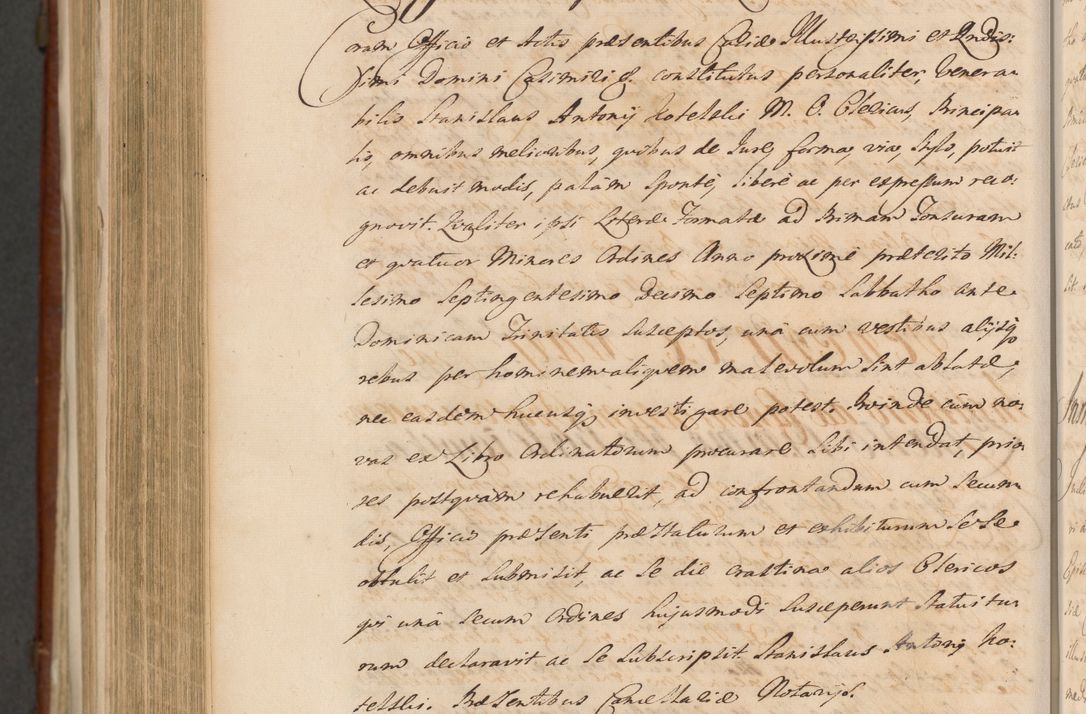 Coram Officio et Actis præsentibus Curiæ Illustrissimi et Rndis-
simi Domini Casimiri &. constitutus personaliter, Venera-
bilis Stanislaus Antonij Kotelski M. O. Clericus, Principa-
lis, omnibus melioribus, quibus de Jure, forma, via, stylo, potuit
ac debuit modis, palàm sponte, liberè ac per expressum reco-
gnovit. Qualiter ipsi Litteræ Formatæ ad Primam Tonsuram
et quatuor Minores Ordines Anno proximè præterito Mil-
lesimo Septingentesimo Decimo Septimo Sabbatho ante
Dominicam Trinitatis susceptos, unà cum vestibus alijsq
rebus per hominem aliquem malevolum sint ablatæ,
nec easdem hucusq investigare potest. Proinde cùm no-
vas ex Libro Ordinatorum procurare sibi intendat, prio-
res postquàm rehabuerit, ad confrontandum cum secun-
dis, Officio præsenti præstaturum et exhibiturum se se
obtulit et submisit, ac se die crastina alios Clericos
qui unà secum Ordines hujusmodi susceperunt statuitu-
rum declaravit ac se subscripsit. Stanislaus Antonij Ko-
telski. Præsentibus Cancellariæ Notarijs.